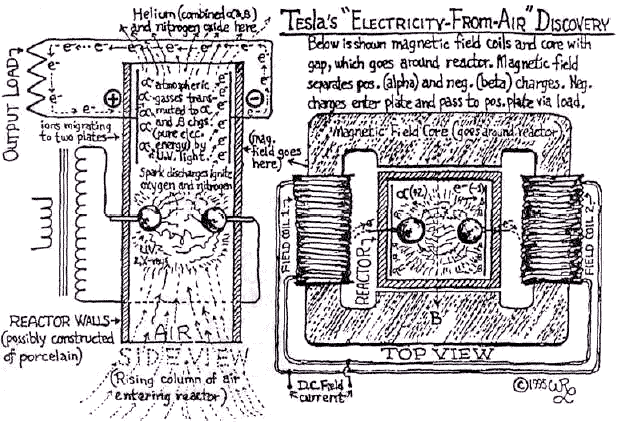 Helium (combined α & B)
and nitrogen oxide here
OUTPUT LOAD
e⁻ e⁻ e⁻ e⁻
+
−
α atmospheric
gasses trans-
muted to α
and B chgs
(pure elec.
energy) by
U.V. light.
ions migrating
to two plates
(mag.
field goes
here)
Spark discharges ignite
oxygen and nitrogen
UV
& X-rays
REACTOR WALLS
(possibly constructed
of porcelain)
AIR
SIDE VIEW
(Rising column of air
entering reactor)
TESLA'S "ELECTRICITY-FROM-AIR" DISCOVERY
Below is shown magnetic field coils and core with
gap, which goes around reactor. Magnetic field
separates pos. (alpha) and neg. (beta) charges. Neg.
charges enter plate and pass to pos. plate via load.
Magnetic Field Core (goes around reactor)
α(+2) e⁻(-1)
FIELD COIL 1
REACTOR
FIELD COIL 2
B
TOP VIEW
D.C. Field
current
©1995